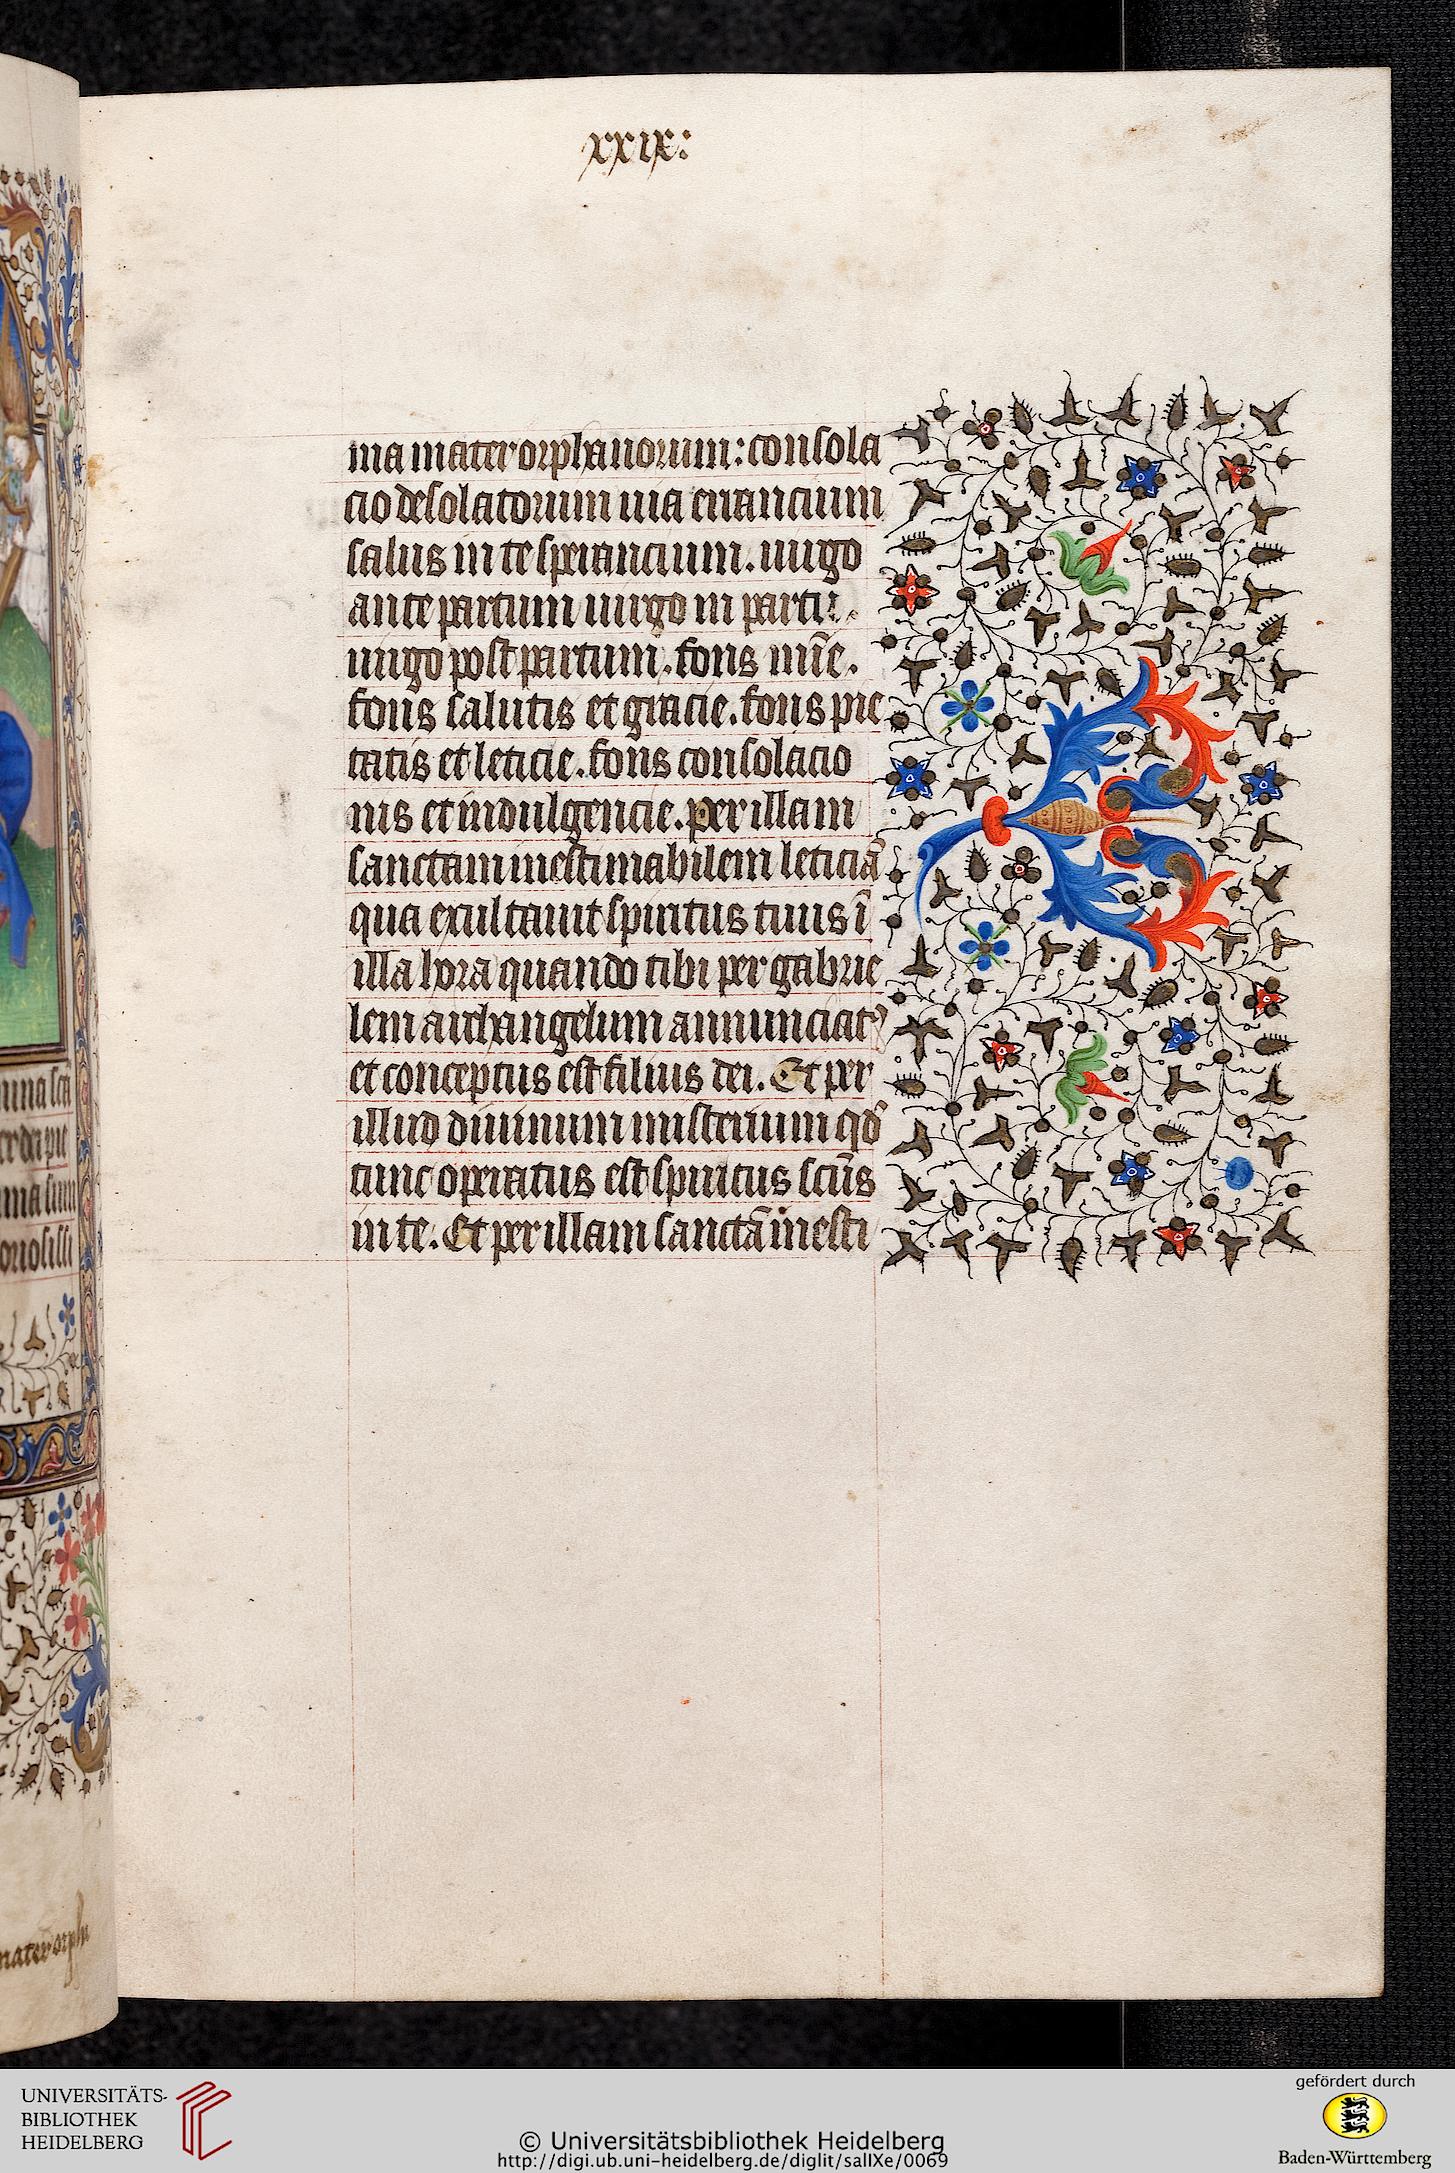 xxix:
ma mater orphanorum: consola
cio desolatorum uia errancium
salus in te sperancium. uirgo
ante partum uirgo in partu.
uirgo post partum. fons mīe.
fons salutis et gracie. fons pie
tatis et leticie. fons consolacio
nis et indulgencie. per illam
sanctam inestimabilem leticiā
qua exultauit spiritus tuus ī
illa hora quando tibi per gabrie
lem archangelum annunciatꝰ
et conceptus est filius dei. Et per
illud diuinum misterium qd̄
tunc operatus est spiritus scūs
in te. Et per illam sanctā inesti
mater orph
UNIVERSITÄTS-
BIBLIOTHEK
HEIDELBERG
© Universitätsbibliothek Heidelberg
http://digi.ub.uni-heidelberg.de/diglit/salIXe/0069
gefördert durch
Baden-Württemberg